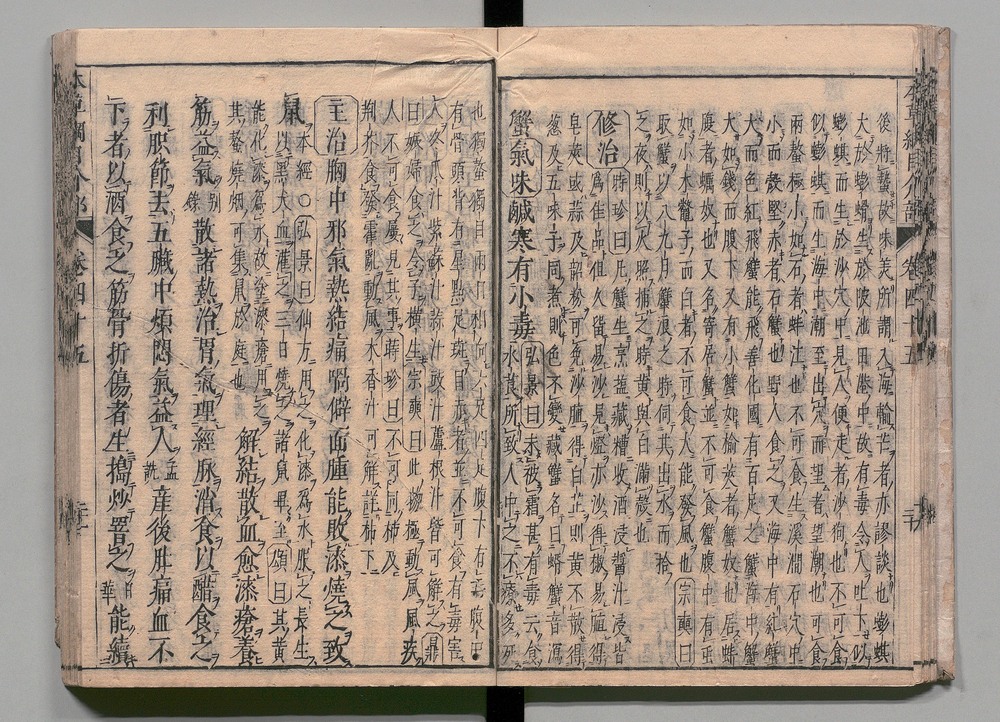 本草綱目介部 卷四十五 二十
後將螯故味美所謂入海輸芒者亦謬談也蟛蜞
大於蟛螖生於陂池田港中故有毒令人吐下似
蟛蜞而生於沙穴中見人便走者沙狗也不可食
似蟛蜞而生海中潮至出穴而望者望潮也可食
兩螯極小如石者蚌江也不可食生溪澗石穴中
小而殼堅赤者石蟹也野人食之又海中有紅蟹
大而色紅飛蟹能飛善化國有百足之蟹海中蟹
大如錢而腹下又有小蟹如榆莢者蟹奴也居蚌
腹者蠣奴也又名寄居蟹並不可食蟹腹中有虫
如小木鱉子而白者不可食大能發風也宗奭曰
取蟹以八九月蟹浪之時伺其出水而拾
之夜則以火照捕之時黃與白滿殼也
修治時珍曰凡蟹生烹鹽藏糟收酒浸醬汁浸皆
爲佳品但久留易沙見燈亦沙得椒易䐈得
皂莢或蒜及韶粉可免沙䐈得白芷則黃不散得
葱及五味子同煮則色不變藏蟹名曰蝑蟹音瀉
蟹氣味鹹寒有小毒弘景曰未被霜甚有毒云食
水莨所致人中之不療多死
也獨螯獨目兩目相向六足四足腹下有毛腹中
有骨頭背有星點足斑目赤者並不可食有毒害
人冬瓜汁紫蘇汁蒜汁豉汁蘆根汁皆可解之鼎
曰娠婦食之令子橫生宗奭曰此物極動風風疾
人不可食屢見其事時珍曰不可同柿及
荊芥食發霍亂動風木香汁可解詳柿下
主治胸中邪氣熱結痛喎僻面腫能敗漆燒之致
鼠本經○弘景曰仙方用之化漆爲水服之長生
以黑犬血灌之三日燒之諸鼠畢至頌曰其黃
能化漆爲水故塗漆瘡用之
其螯燒烟可集鼠於庭也解結散血愈漆瘡養
筋益氣別錄散諸熱治胃氣理經脉消食以醋食之
利肢節去五臟中煩悶氣益人孟詵產後肚痛血不
下者以酒食之筋骨折傷者生搗炒罯之日華能續
本草綱目介部 卷四十五